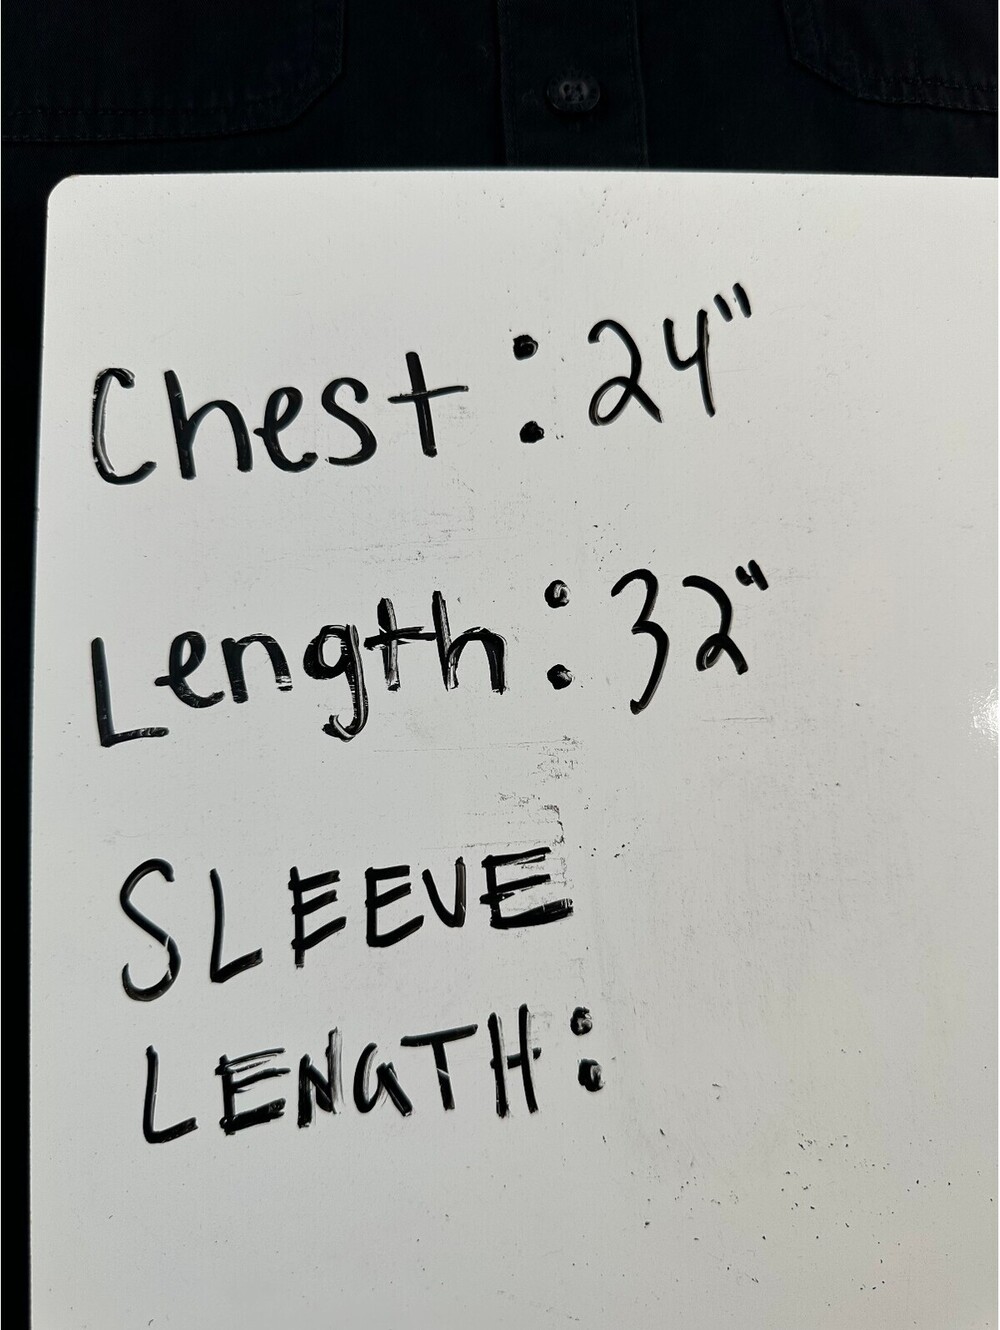 Chest: 24"
Length: 32"
SLEEVE
LENGTH: